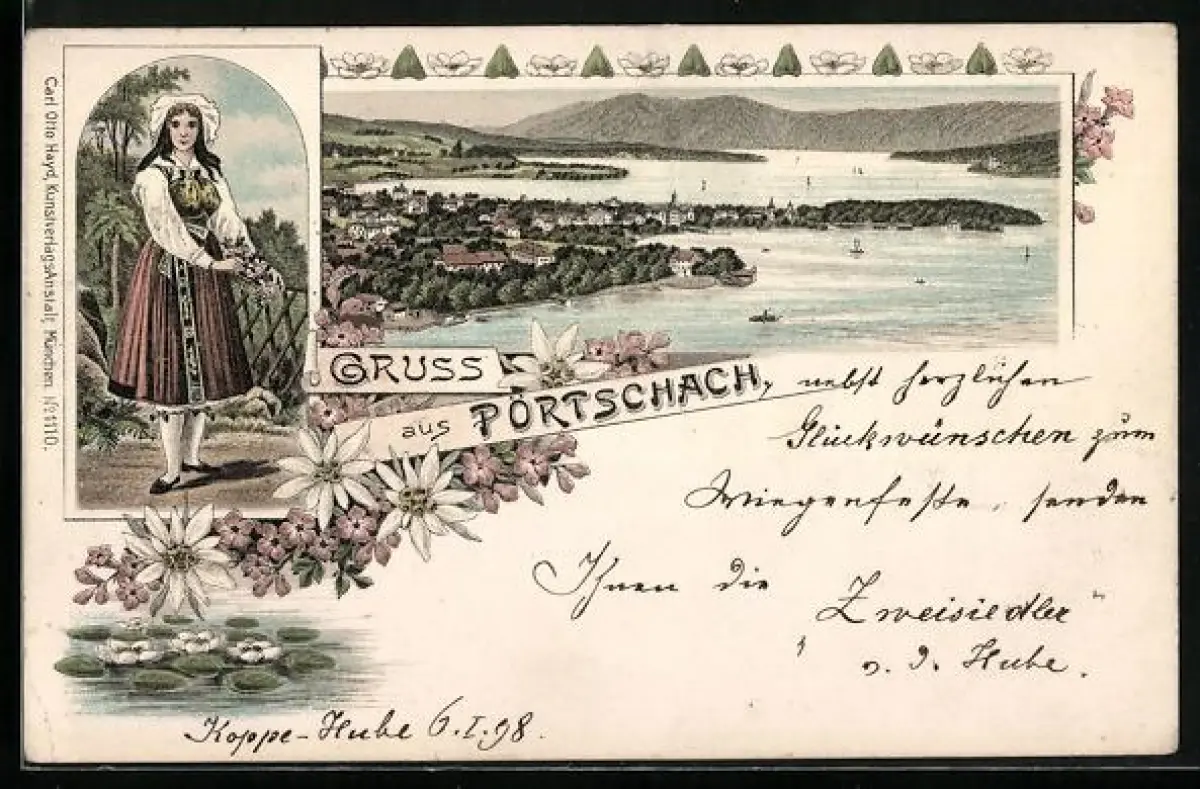 Carl Otto Hayd, Kunstverlags-Anstalt, München. No 1110.
GRUSS
aus PÖRTSCHACH, nebst herzlichen
Glückwünschen zum
Wiegenfeste, senden
Ihnen die „Zweisiedler"
v. d. Hube.
Koppe-Hube 6.I.98.